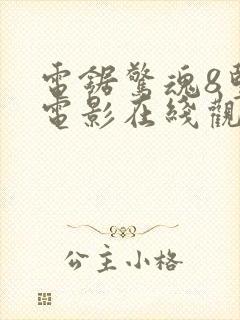 電鋸驚魂8
電影在綫觀
公主小格